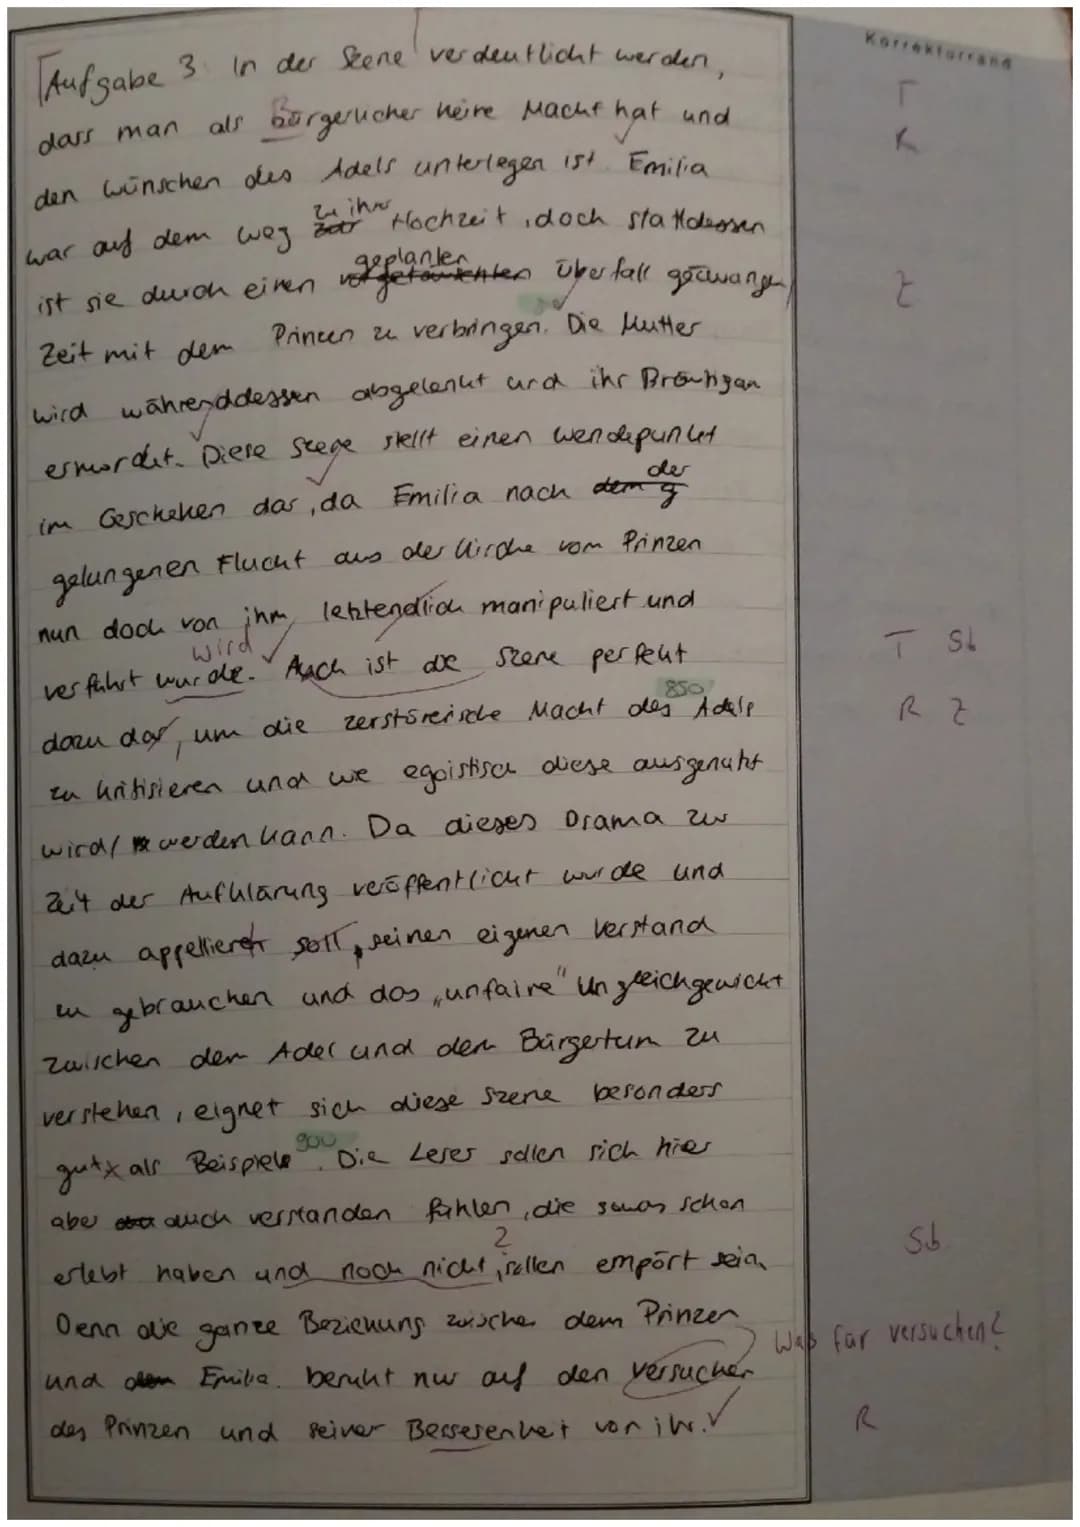 Korrekturrand
Aufgabe 3 In der Szene verdeutlicht werden, T
dass man als bürgerlicher keine Macht hat und R
den wünschen des Adels unterlegen ist. Emilia
war auf dem weg zu ihrer Hochzeit, doch stattdessen
ist sie durch einen geplanten Überfall gezwungen, Z
Zeit mit dem Prinzen zu verbringen. Die Mutter
wird währenddessen abgelenkt und ihr Bräutigam
ermordet. Diese Szene stellt einen wendepunkt
im Geschehen dar, da Emilia nach der
gelungenen Flucht aus der Kirche vom Prinzen
nun doch von ihm letztendlich manipuliert und T Sb
wird
verführt wurde. Auch ist die Szene perfekt
850
dazu dar, um die zerstörerische Macht des Adels R Z
zu kritisieren und wie egoistisch diese ausgenutzt
wird/ werden kann. Da dieses Drama zur
Zeit der Aufklärung veröffentlicht wurde und
dazu appellieren soll, seinen eigenen Verstand
zu gebrauchen und das „unfaire" Ungleichgewicht
zwischen dem Adel und dem Bürgertum zu
verstehen, eignet sich diese Szene besonders
gut als Beispiele 900. Die Leser sollen sich hier
aber auch verstanden fühlen, die sowas schon
erlebt haben und noch nicht, sollen empört sein. Sb
?
Denn die ganze Beziehung zwischen dem Prinzen
und Emilia beruht nur auf den versuchen Was für versuchen?
des Prinzen und seiner Bessesenheit von ihr. R